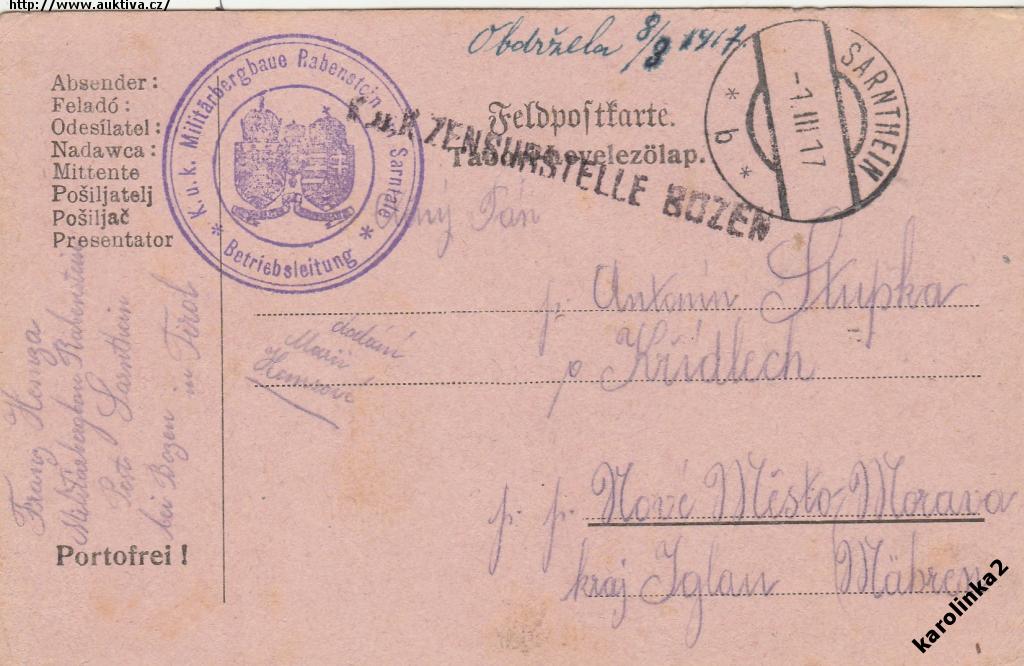 http://www.auktiva.cz/
Obdržela 8/3 1917.
Absender:
Feladó:
Odesílatel:
Nadawca:
Mittente
Pošiljatelj
Pošiljač
Presentator
* K. u. k. Militärbergbaue Rabenstein Sarntale *
Betriebsleitung
Feldpostkarte.
Tábori levelezőlap.
K.u.K ZENSURSTELLE BOZEN
SARNTHEIN
-1.III 17
* * b * *
Pán
p. Antonín Stupka
p Křídlech
dodání
Marii
p. p. Nové Město-Morava
kraj Iglau Mähren
Franz Hemza
Militärbergbau Rabenstein
Post Sarnthein
bei Bozen in Tirol
Portofrei!
karolinka2